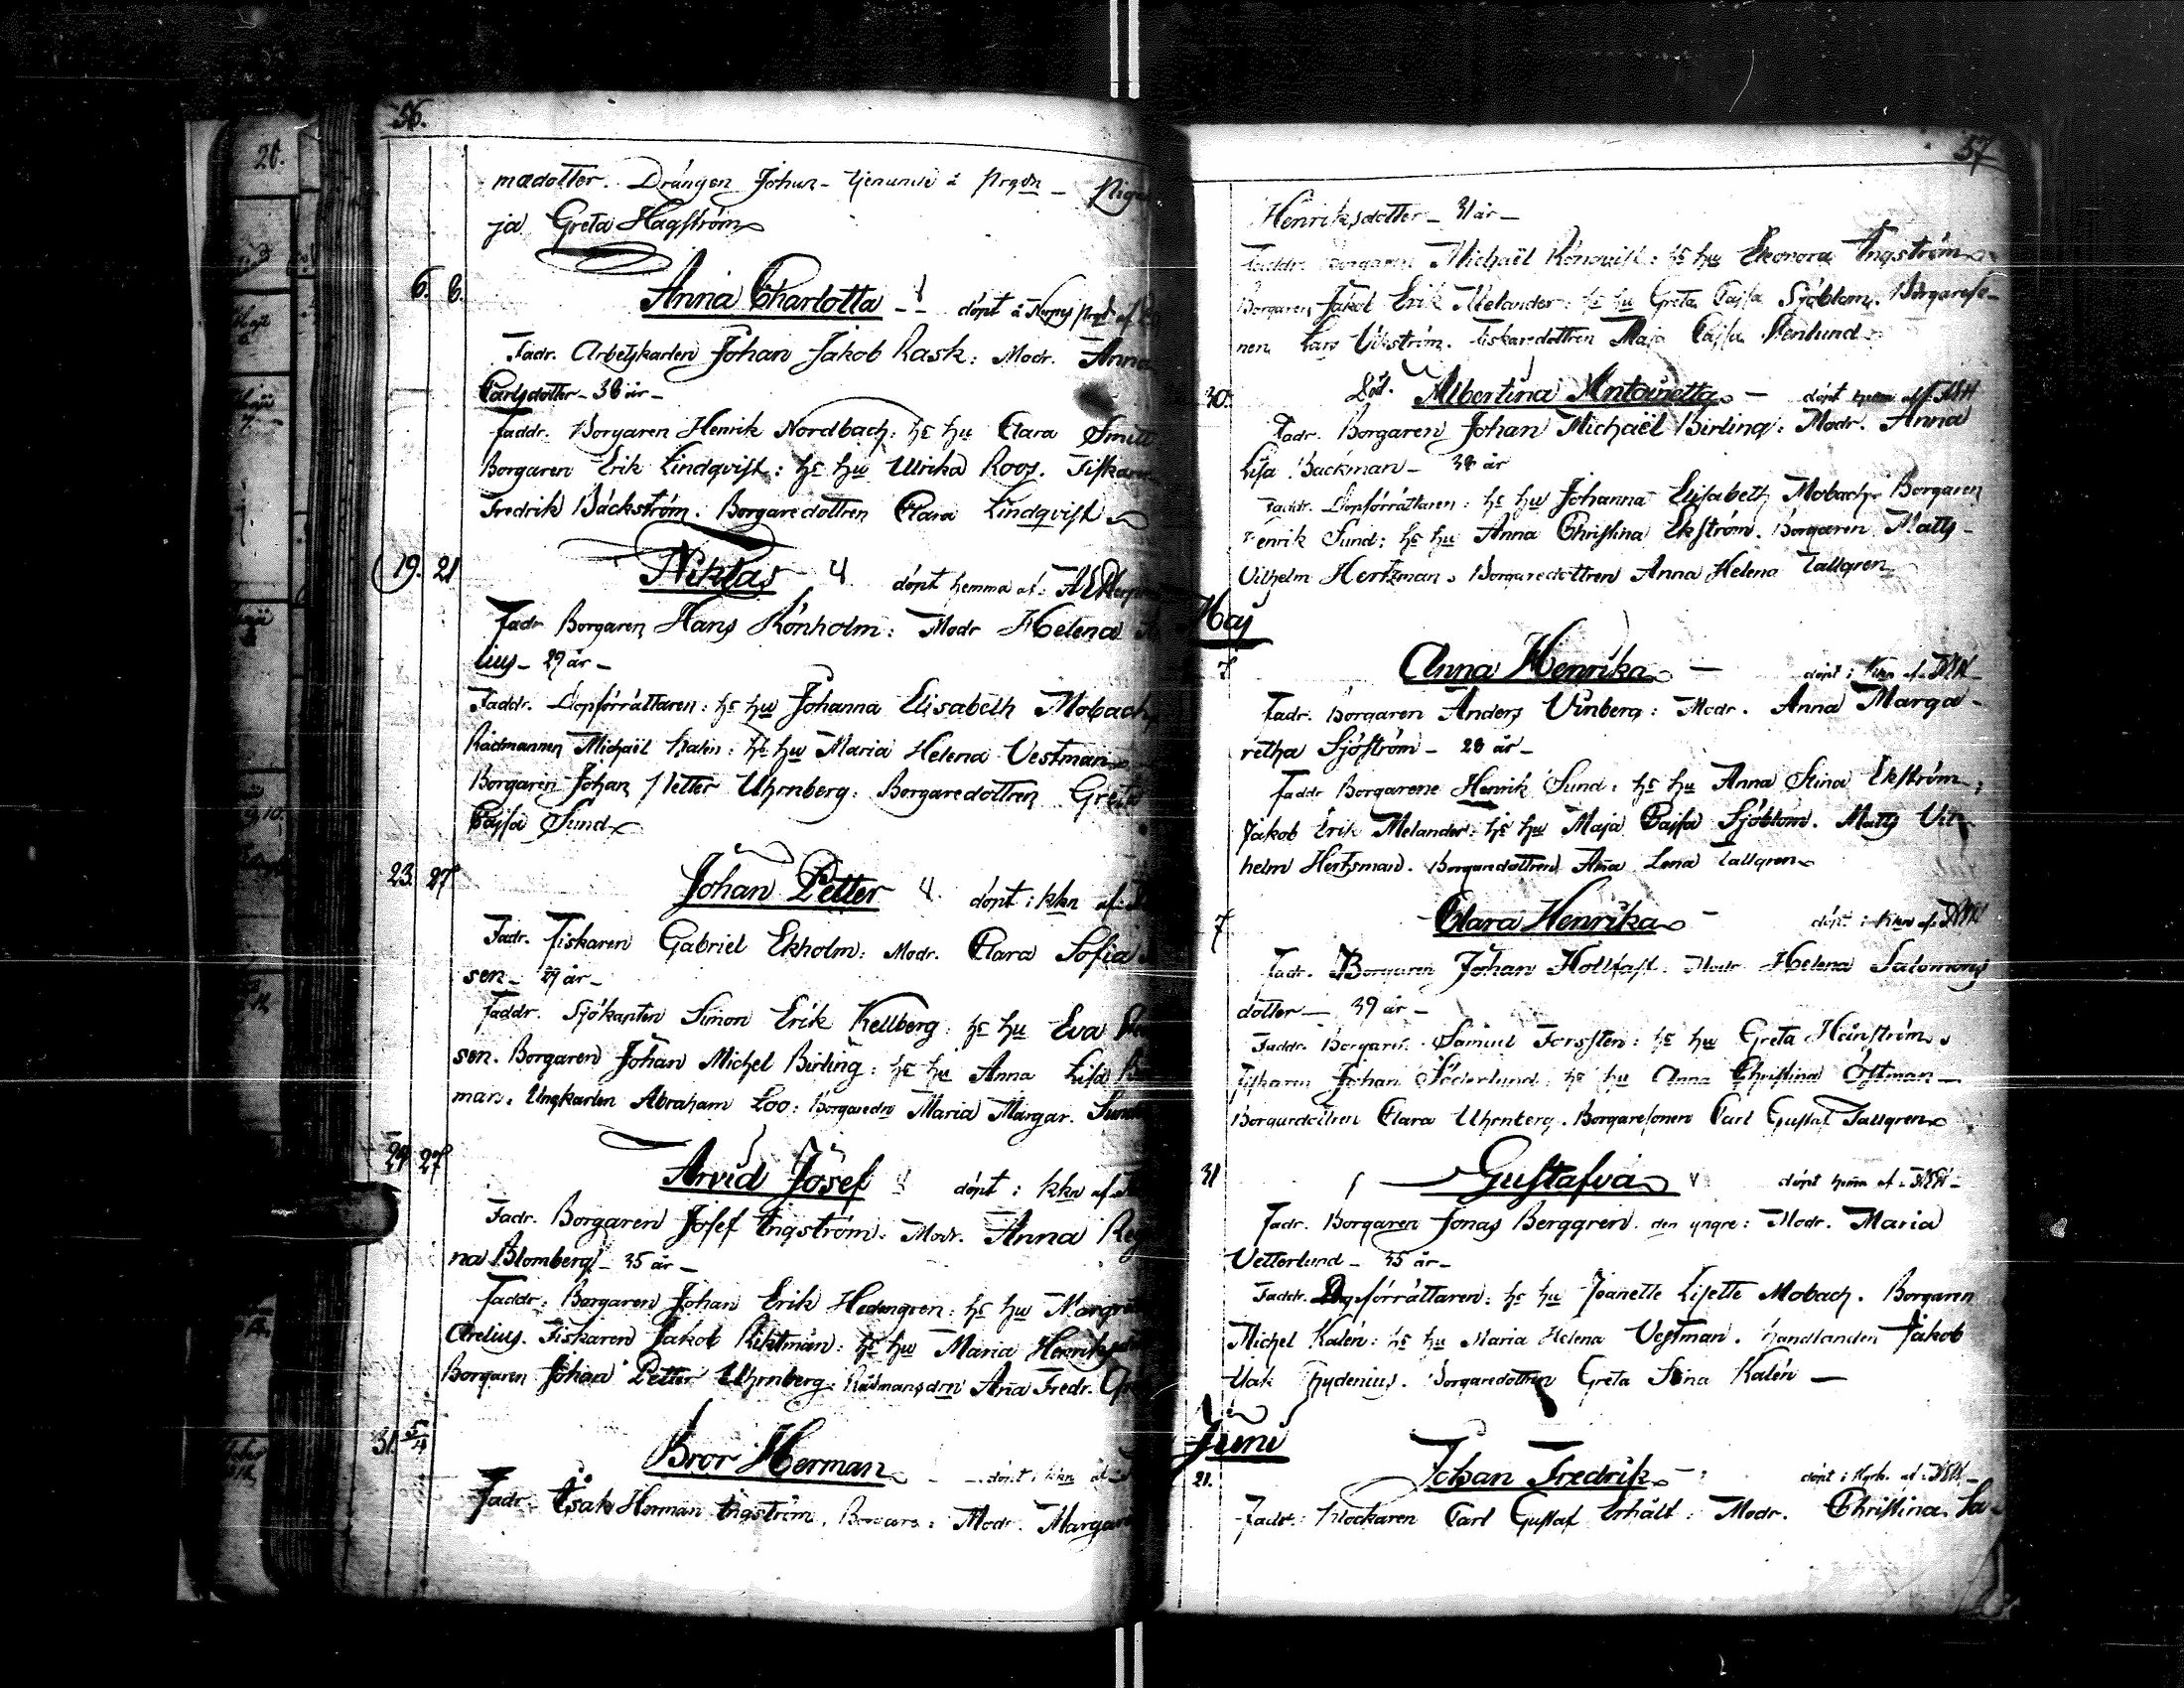 56.
madotter. Drängen Johan
ja Greta Hagström
6. 8. Anna Charlotta döpt å
Fadr. Arbetskarlen Johan Jakob Rask: Modr. Anna
Carlsdotter - 38 år -
Faddr. Borgaren Henrik Nordbach: hs hu Clara Smitt
Borgaren Erik Lindqvist: hs hu Ulrika Roos. Fiskaren
Fredrik Bäckström. Borgaredottren Clara Lindqvist
19. 21 Niklas döpt hemma af:
Fadr Borgaren Hans Rönholm: Modr Helena
lius - 29 år -
Faddr. Dopförrättaren: hs hu Johanna Elisabeth Mobach,
Rådmannen Michaël Kalin: hs hu Maria Helena Vestman
Borgaren Johan Petter Uhrnberg: Borgaredottren Greta
Cajsa Sund
23. 27 Johan Petter döpt i kkn af:
Fadr. Fiskaren Gabriel Ekholm: Modr. Clara Sofia
sen - år -
Faddr. Sjökapten Simon Erik Kellberg: hs hu Eva
sen. Borgaren Johan Michel Birling: hs hu Anna Lisa
man. Ungkarlen Abraham Loo: Borgaredn Maria Margar.
27 Arvid Josef döpt i kkn af
Fadr. Borgaren Josef Engström: Modr. Anna Reg
na Blomberg - 35 år -
Faddr: Borgaren Johan Erik Hedengren: hs hu Margreta
Arelius. Fiskaren Jakob Riktman: hs hu Maria Henriks
Borgaren Johan Petter Uhrnberg: Rådmansdrn Aña Fredr.
31. Bror Herman döpt i kkn af
Fadr. Isak Herman Engström, Borgare: Modr. Margar
57
Henriksdotter - 31 år -
Faddr. Borgaren Michaël Rönqvist: hs hu Eleonora Engström
Borgaren Jakob Erik Melander: hs hu Greta Cajsa Sjöblom. Borgareso-
nen Lars Vikström. Fiskaredottren Maja Cajsa Stenlund
30. Albertina Antoinetta - döpt hemma af
Fadr. Borgaren Johan Michaël Birling: Modr. Anna
Lisa Backman - 38 år
Faddr. Dopförrättaren: hs hu Johanna Elisabeth Mobach. Borgaren
Henrik Sund: hs hu Anna Christina Ekström. Borgaren Matts
Vilhelm Hertzman. Borgaredottren Anna Helena Tallgren
Maj
7 Anna Henrika - döpt i kkn af
Fadr. Borgaren Anders Vinberg: Modr. Anna Marga-
retha Sjöström - 28 år -
Faddr Borgarene Henrik Sund: hs hu Anna Stina Ekström;
Jakob Erik Melander: hs hu Maja Cajsa Sjöblom. Matts Vil-
helm Hertzman. Borgaredottren Aña Lena Tallgren
7. Clara Henrika - döpt i kkn af
Fadr. Borgaren Johan Hollfast: Modr Helena Salomons
dotter - 39 år -
Faddr. Borgaren Samuel Forssten: hs hu Greta Heinström
Fiskaren Johan Söderlund: hs hu Anna Christina Östman -
Borgaredottren Clara Uhrnberg. Borgaresonen Carl Gustaf Tallgren
31 Gustafva döpt hema af
Fadr. Borgaren Jonas Berggren den yngre: Modr. Maria
Vetterlund - 35 år -
Faddr. Dopförrättaren: hs hu Jeanette Lisette Mobach. Borgaren
Michel Kalén: hs hu Maria Helena Vestman. Handlanden Jakob
Isak Chydenius. Borgaredottren Greta Stina Kalén -
Juni
21. Johan Fredrik - döpt i kyrk. af
Fadr: Klockaren Carl Gustaf Erhält: Modr. Christina Sa-